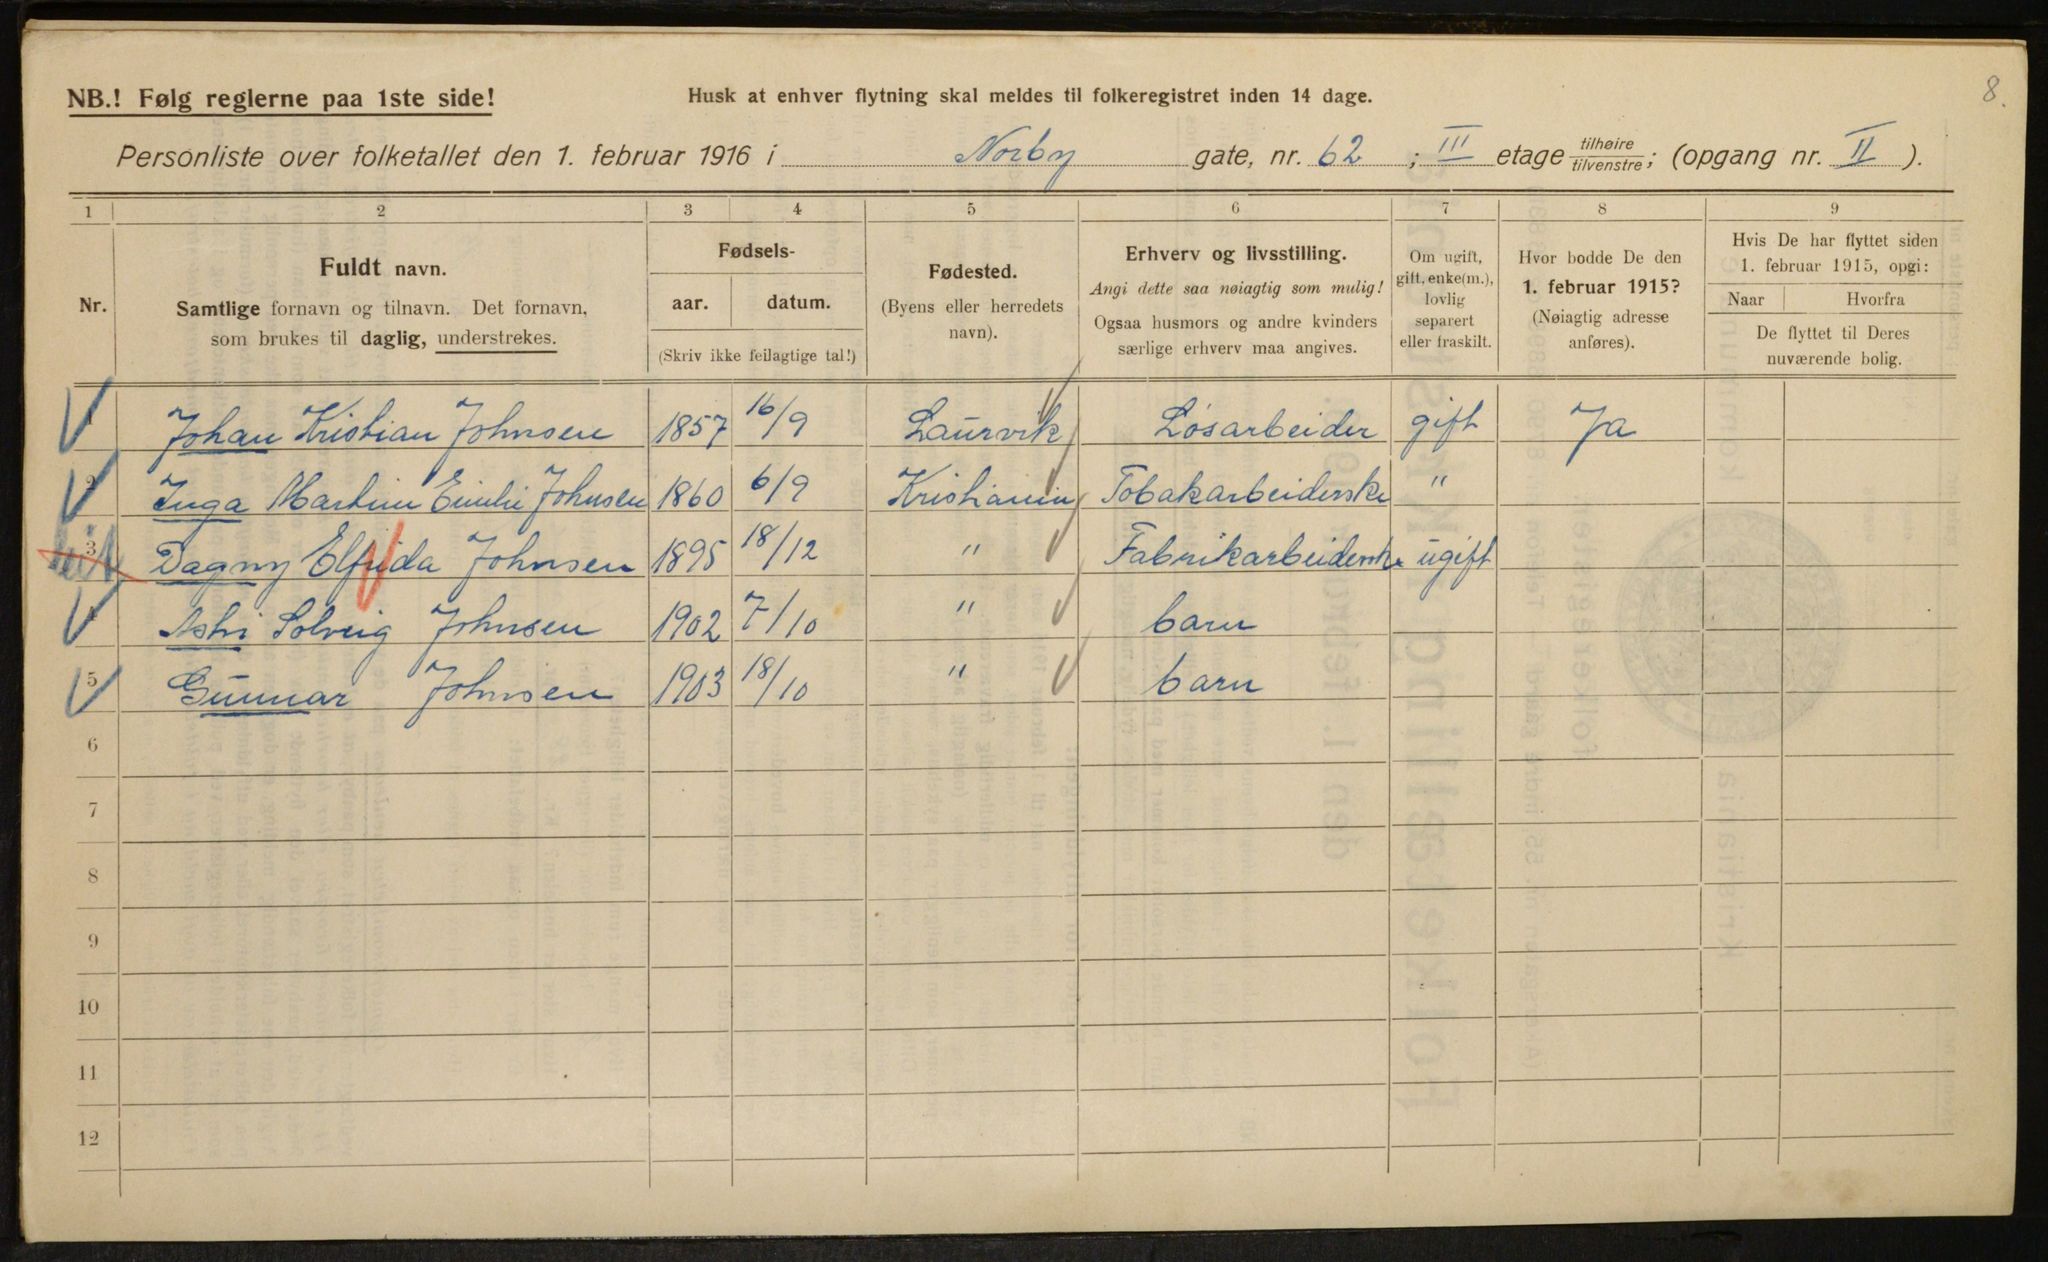 8.
NB.! Følg reglerne paa 1ste side!
Husk at enhver flytning skal meldes til folkeregistret inden 14 dage.
Personliste over folketallet den 1. februar 1916 i Norby gate, nr. 62 ; III etage tilhøire/tilvenstre; (opgang nr. II ).
1 2 3 4 5 6 7 8 9
Nr.
Fuldt navn.
Samtlige fornavn og tilnavn. Det fornavn,
som brukes til daglig, understrekes.
Fødsels-
aar. datum.
(Skriv ikke feilagtige tal!)
Fødested.
(Byens eller herredets
navn).
Erhverv og livsstilling.
Angi dette saa nøiagtig som mulig!
Ogsaa husmors og andre kvinders
særlige erhverv maa angives.
Om ugift,
gift, enke(m.),
lovlig
separert
eller fraskilt.
Hvor bodde De den
1. februar 1915?
(Nøiagtig adresse
anføres).
Hvis De har flyttet siden
1. februar 1915, opgi:
Naar Hvorfra
De flyttet til Deres
nuværende bolig.
1 Johan Kristian Johnsen 1857 16/9 Laurvik Løsarbeider gift Ja
2 Inga Martine Emilie Johnsen 1860 6/9 Kristiania Tobakarbeiderske "
3 Dagny Elfrida Johnsen 1895 18/12 " Fabrikarbeiderske ugift
4 Astri Solveig Johnsen 1902 7/10 " barn
5 Gunnar Johnsen 1903 18/10 " barn
6
7
8
9
10
11
12